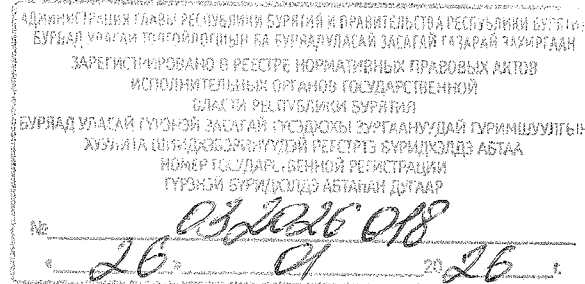 АДМИНИСТРАЦИЯ ГЛАВЫ РЕСПУБЛИКИ БУРЯТИЯ И ПРАВИТЕЛЬСТВА РЕСПУБЛИКИ БУРЯТИЯ
БУРЯАД УЛАСАЙ ТОЛГОЙЛОГШЫН БА БУРЯАД УЛАСАЙ ЗАСАГАЙ ГАЗАРАЙ ЗАХИРГААН
ЗАРЕГИСТРИРОВАНО В РЕЕСТРЕ НОРМАТИВНЫХ ПРАВОВЫХ АКТОВ
ИСПОЛНИТЕЛЬНЫХ ОРГАНОВ ГОСУДАРСТВЕННОЙ
ВЛАСТИ РЕСПУБЛИКИ БУРЯТИЯ
БУРЯАД УЛАСАЙ ГҮРЭНЭЙ ЗАСАГАЙ ГҮЙСЭДХЭХЫ ЗУРГААНУУДАЙ ГУРИМШУУЛГЫН
РЕЕСТРТЭ БҮРИДХЭЛДЭ АБТАА
НОМЕР ГОСУДАРСТВЕННОЙ РЕГИСТРАЦИИ
ГҮРЭНЭЙ БҮРИДХЭЛДЭ АБТАҺАН ДУГААР
№ 032026018
« 26 » 01 20 26 г.